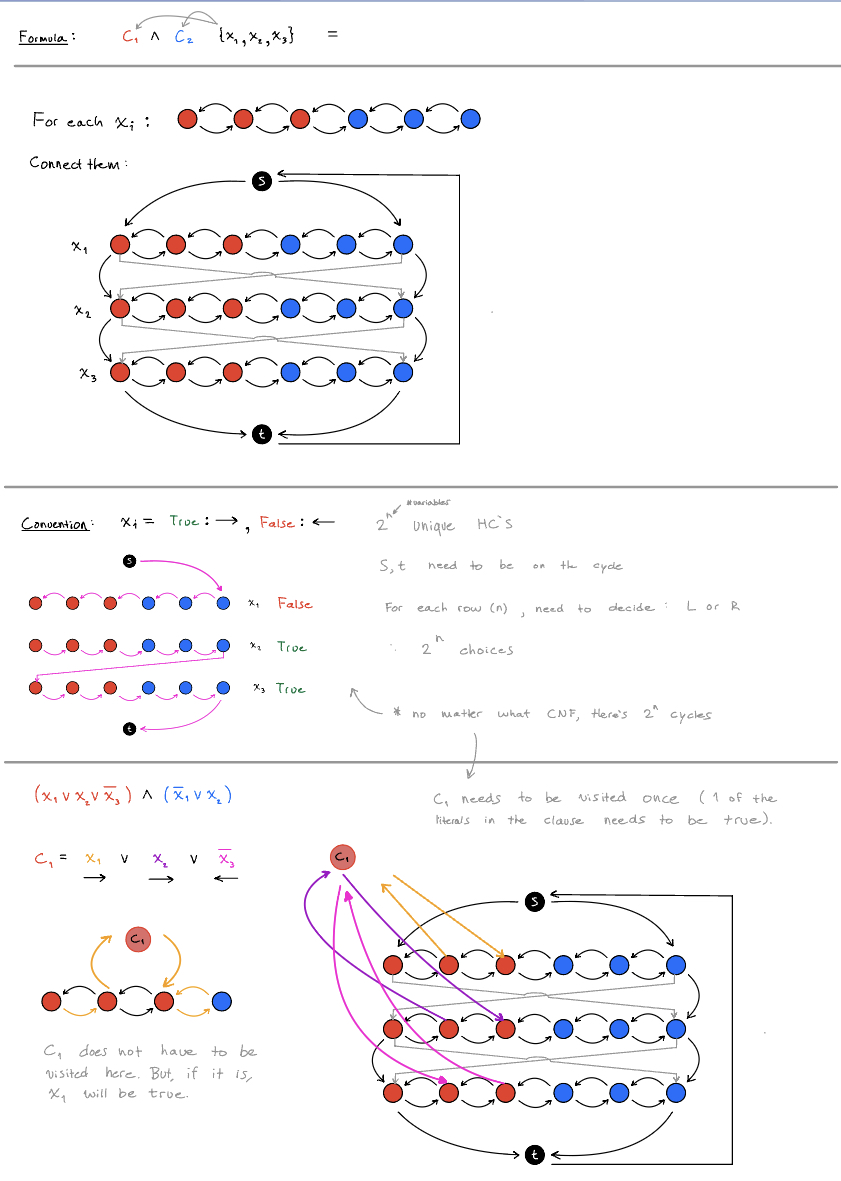 Formula: C₁ ∧ C₂ {x₁, x₂, x₃} =
For each xᵢ:
Connect them:
S
x₁
x₂
x₃
t
Convention: xᵢ = True: →, False: ←
#variables
2ⁿ unique HC's
S, t need to be on the cycle
S
x₁ False
For each row (n), need to decide: L or R
x₂ True
∴ 2ⁿ choices
x₃ True
* no matter what CNF, there's 2ⁿ cycles
t
(x₁ ∨ x₂ ∨ x̅₃) ∧ (x̅₁ ∨ x₂)
C₁ needs to be visited once (1 of the
literals in the clause needs to be true).
C₁ = x₁ ∨ x₂ ∨ x̅₃
→ → ←
C₁
S
C₁
C₁ does not have to be
visited here. But, if it is,
x₁ will be true.
t